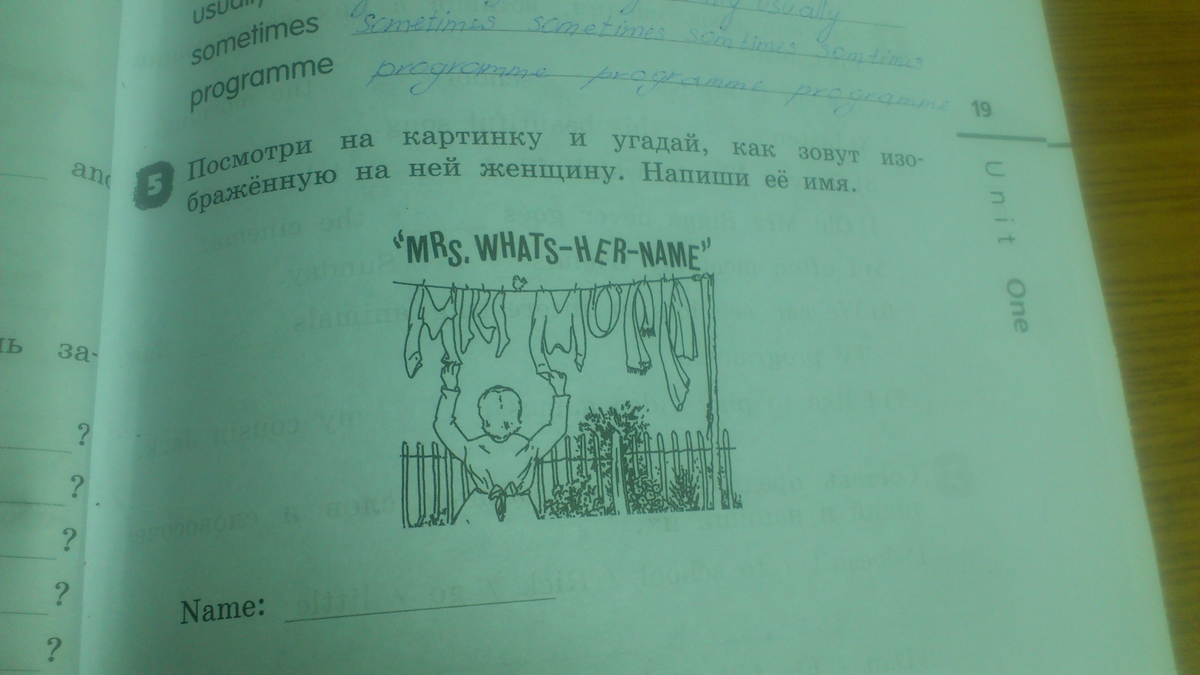 usually
sometimes sometimes sometimes somtimes somtimes
programme programme programme programme
19
Unit One
and
5 Посмотри на картинку и угадай, как зовут изо-
бражённую на ней женщину. Напиши её имя.
"MRS. WHATS-HER-NAME"
за-
?
?
?
?
?
Name: